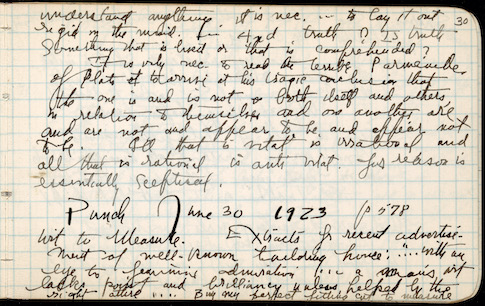 understand anything it is nec. - to lay it out
rigid in the mind. - is and truth? Is truth
something that is lived or that is comprehended?
It is very nec. to read the terrible Parmenides
of Plato to arrive at his tragic conclusion that
the one is and is not & both itself and others
in relation to themselves and one another are
and are not and appear to be and appear not
to be. All that is vital is irrational and
all that is rational is anti vital. for reason is
essentially sceptical.
30
Punch June 30 1923 p 578
Wit to Measure. Extracts fr recent advertise-
ment of well-known tailoring house: "....with an
eye to feminine admiration ... a man's wit
lacks point and brilliancy unless helped by the
right attire .... Buy my perfect fitting cut to measure